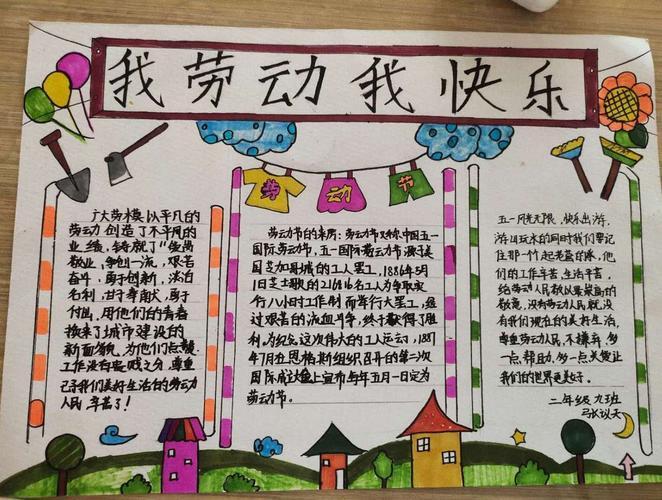 我劳动我快乐
劳动节
广大劳模以平凡的
劳动创造了不平凡的
业绩,铸就了"爱岗
敬业,争创一流,艰苦
奋斗,勇于创新,淡泊
名利,甘于奉献,勇于
付出,用他们的青春
换来了城市建设的
新面貌,为他们点赞,
工作没有贵贱之分,尊重
己予我们美好生活的劳动
人民 辛苦了!
劳动节的来历:劳动节又称中国五一
国际劳动节,五一国际劳动节源于美
国芝加哥城的工人罢工,1886年5月
1日芝士歌的216816名工人为争取实
行八小时工作制而举行大罢工,经
过艰苦的流血斗争,终于获得了胜
利,为纪念这次伟大的工人运动,1889
年7月在恩格斯组织召开的第二次
国际成大会上宣布每年五月一日定为
劳动节。
五一风光无限,快乐出游,
游山玩水的同时我们要记
住那一个起老茧的家,他
们的工作辛苦,生活辛苦,
给劳动人民致以最崇高的
敬意,没有劳动人民,就没
有我们现在的美好生活,
尊重劳动人民,不嫌弃,多
一点帮助,多一点关爱让
我们的世界更美好。
二年级九班